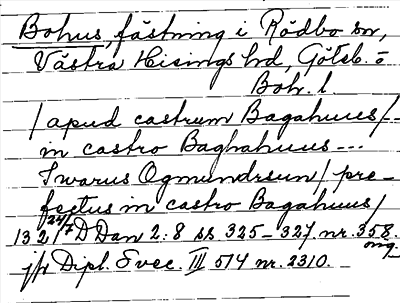 Bohus, fästning i Rödbo sn,
Västra Hisings hd, Göteb. o
Boh. l.
/apud castrum Bagahuus/--
in castro Baghahuus ---
Iwarus Ogmundsun/pre-
fectus in castro Bagahuus/
132 24/7 D Dan 2:8 ss 325-327. nr. 358.
orig.
jfr Dipl. Svec. III 514 nr. 2310.